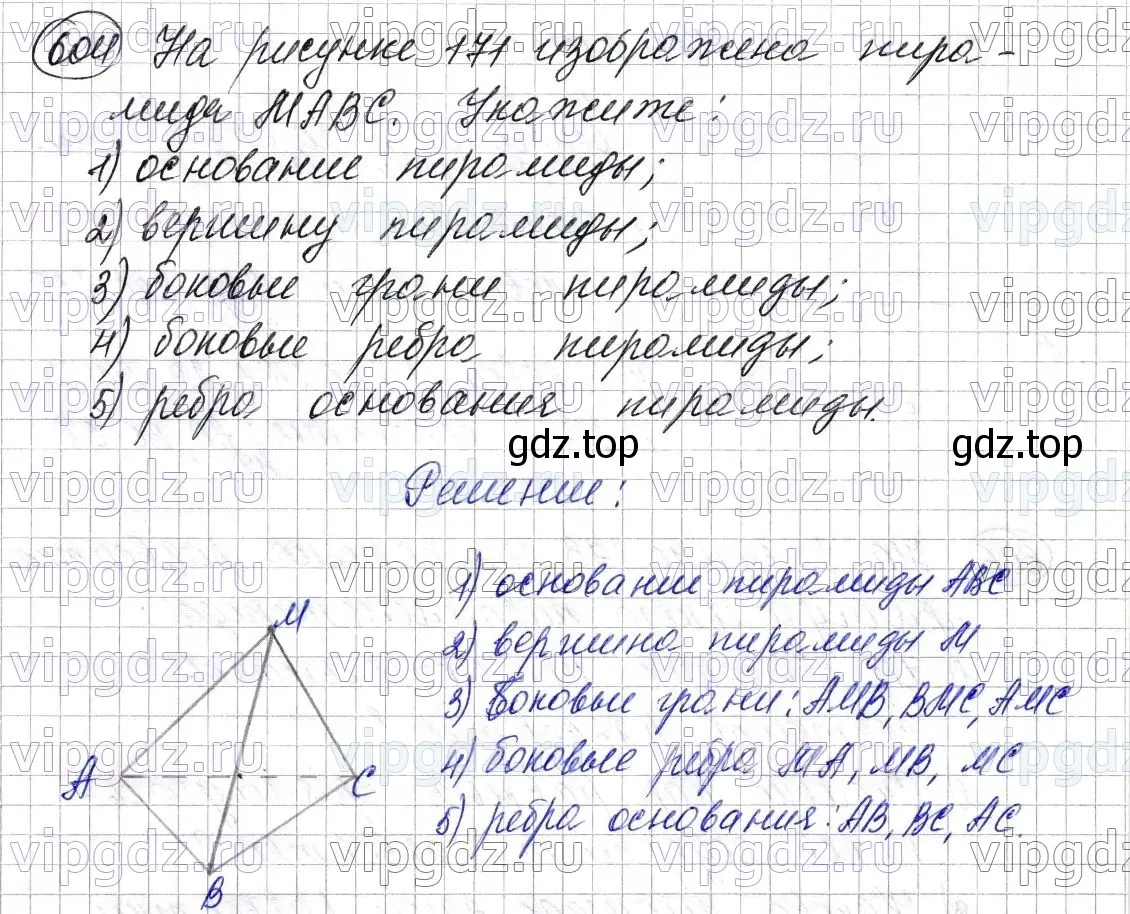 604 На рисунке 171 изображена пира-
мида MABC. Укажите:
1) основание пирамиды;
2) вершину пирамиды;
3) боковые грани пирамиды;
4) боковые ребра пирамиды;
5) ребра основания пирамиды.
gdz.top
Решение:
1) основание пирамиды ABC
2) вершина пирамиды M
3) боковые грани: AMB, BMC, AMC
4) боковые ребра MA, MB, MC
5) ребра основания: AB, BC, AC.
M
A
C
B
vipgdz.ru